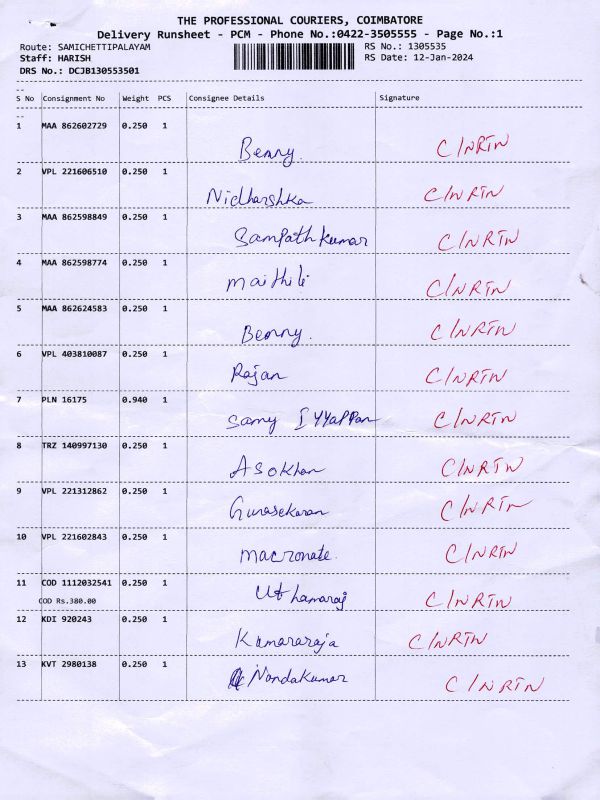 THE PROFESSIONAL COURIERS, COIMBATORE
Delivery Runsheet - PCM - Phone No.:0422-3505555 - Page No.:1
Route: SAMICHETTIPALAYAM RS No.: 1305535
Staff: HARISH RS Date: 12-Jan-2024
DRS No.: DCJB130553501
--
S No Consignment No Weight PCS Consignee Details Signature
--
1 MAA 862602729 0.250 1
Benny. C/NRTN
2 VPL 221606510 0.250 1
Nidharshka C/NRTN
3 MAA 862598849 0.250 1
Sampathkumar C/NRTN
4 MAA 862598774 0.250 1
maithili C/NRTN
5 MAA 862624583 0.250 1
Benny. C/NRTN
6 VPL 403810087 0.250 1
Rajan C/NRTN
7 PLN 16175 0.940 1
Samy IYYAPPan C/NRTN
8 TRZ 140997130 0.250 1
ASOKhan C/NRTN
9 VPL 221312862 0.250 1
Gunasekaran C/NRTN
10 VPL 221602843 0.250 1
macronate. C/NRTN
11 COD 1112032541 0.250 1
COD Rs.380.00 Uthamaraj C/NRTN
12 KDI 920243 0.250 1
Kamararaja C/NRTN
13 KVT 2980138 0.250 1
Nandakumar C/NRTN